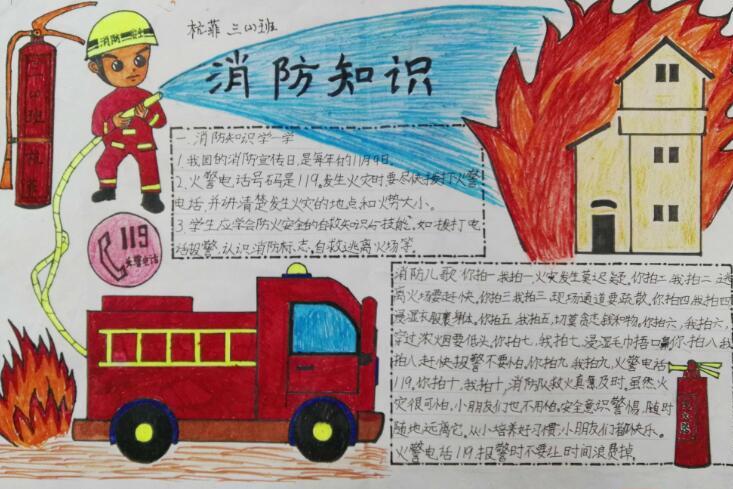 杭菲 三(4)班
消防知识
消防
一.消防知识学一学
1.我国的消防宣传日,是每年的11月9日.
2.火警电话号码是119.发生火灾时要尽快拨打火警
电话,并讲清楚发生火灾的地点和火势大小.
3.学生应学会防火安全的自救知识与技能,如拨打电
话报警,认识消防标志.自救逃离火场等.
119
火警电话
消防儿歌 你拍一我拍一,火灾发生莫迟疑.你拍二,我拍二 逃
离火场要赶快.你拍三我拍三,现场通道要疏散.你拍四我拍四
浸湿衣服裹身体.你拍五,我拍五,切莫贪恋钱和物.你拍六,我拍六,
穿过浓烟要低头,你拍七,我拍七,浸湿毛巾捂口鼻你拍八我
拍八赶快报警不要怕.你拍九,我拍九,火警电话
119.你拍十,我拍十,消防队救火真及时.虽然火
灾很可怕,小朋友们也不用怕.安全意识警惕,随时
随地远离它,从小培养好习惯,小朋友们都快乐.
火警电话119,报警时不要让时间浪费掉